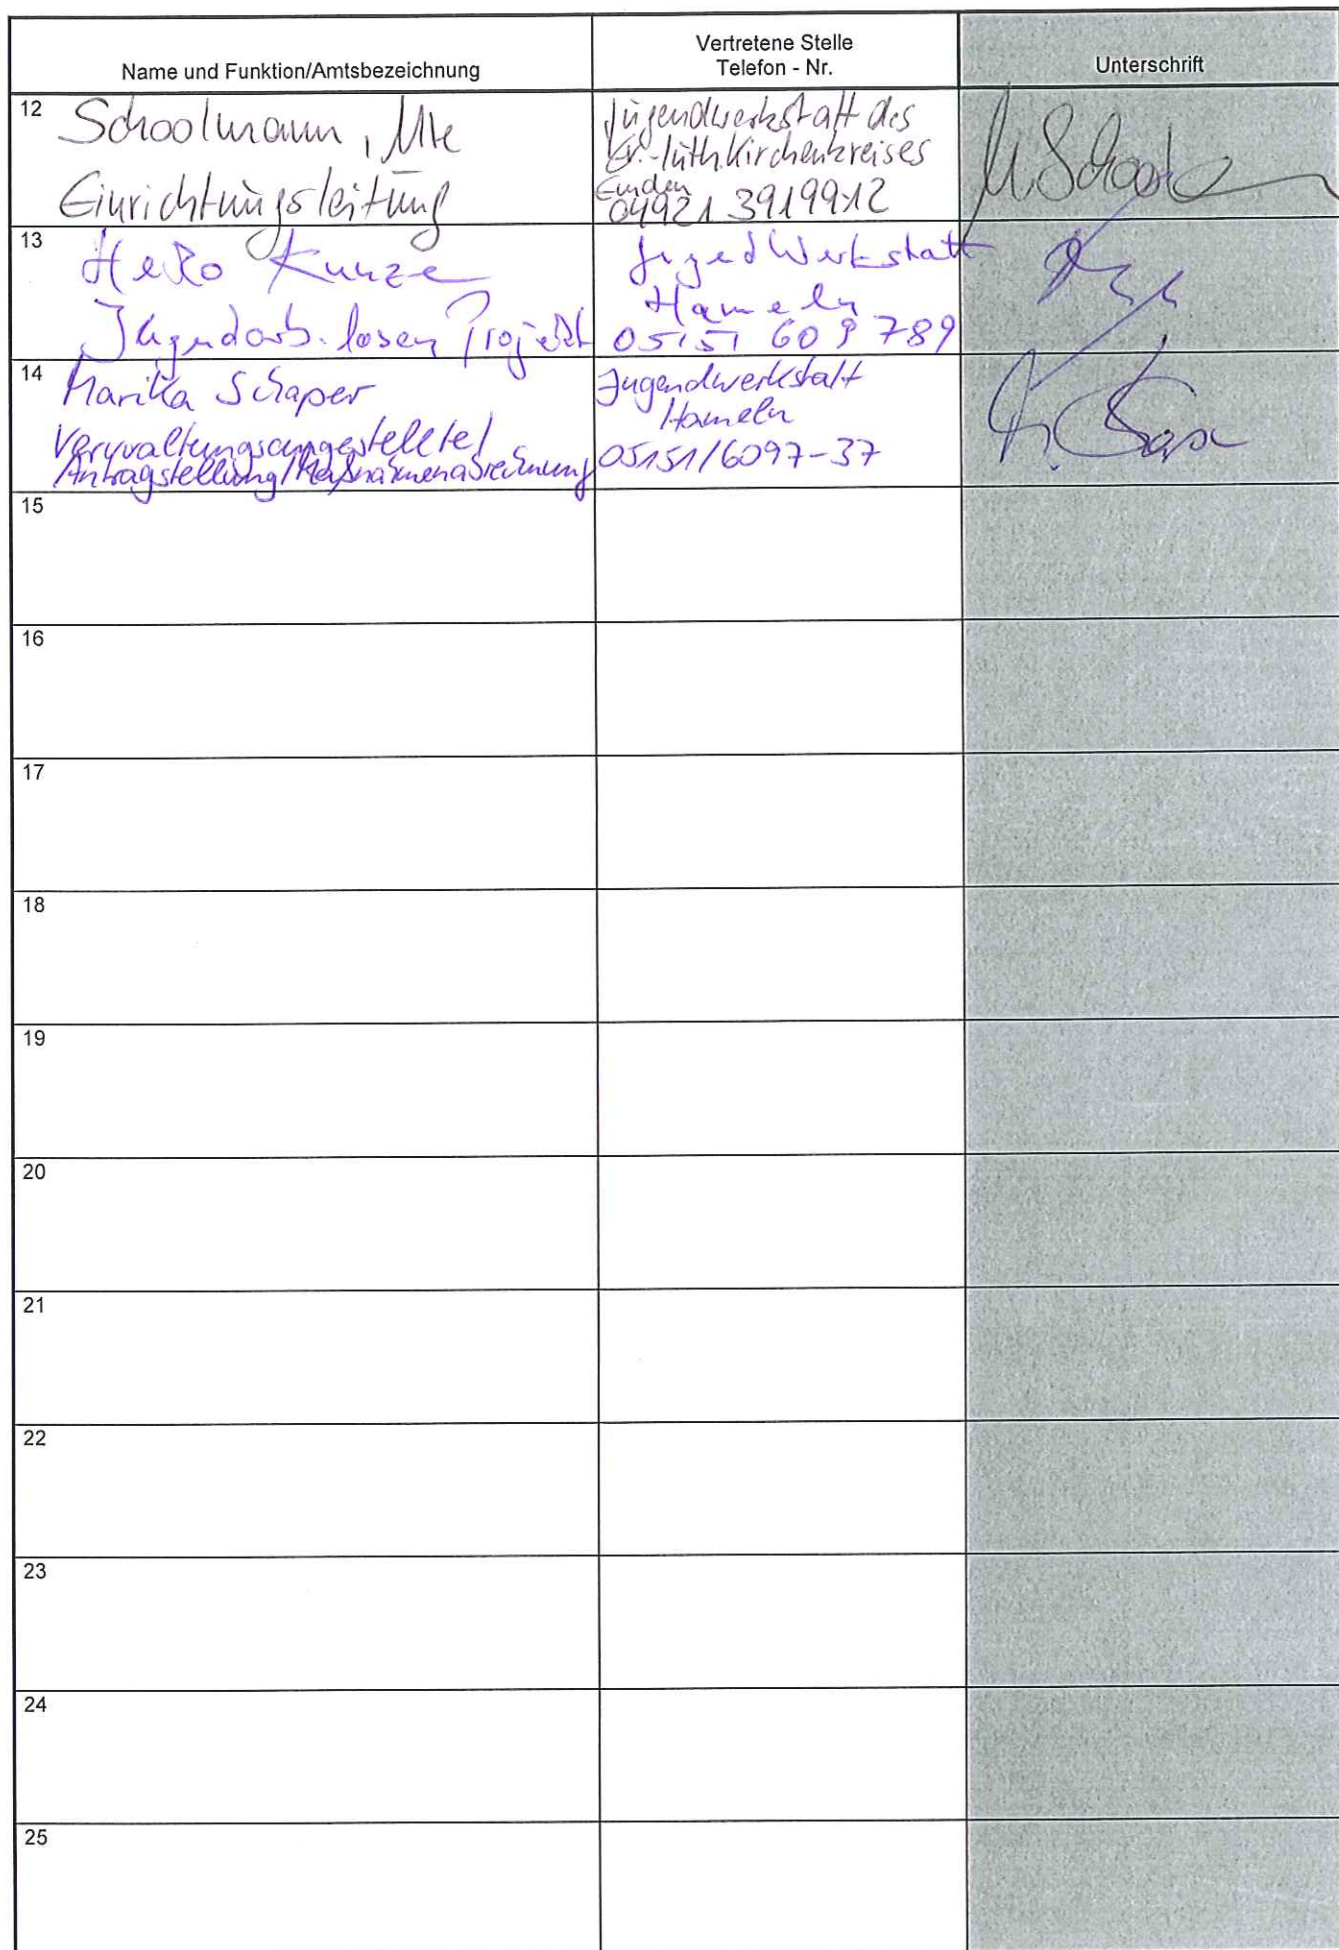 Name und Funktion/Amtsbezeichnung
Vertretene Stelle
Telefon - Nr.
Unterschrift
12
Schoolmann, Ute
Einrichtungsleitung
Jugendwerkstatt des
Ev.-luth. Kirchenkreises
Emden
04921 3919912
13
Heiko Kunze
Jugendarb.losen Projekt
Jugendwerkstatt
Hameln
05151 609 789
14
Marika Schaper
Verwaltungsangestellte/
Antragstellung/Maßnahmenabrechnung
Jugendwerkstatt
Hameln
05151/6097-37
15
16
17
18
19
20
21
22
23
24
25